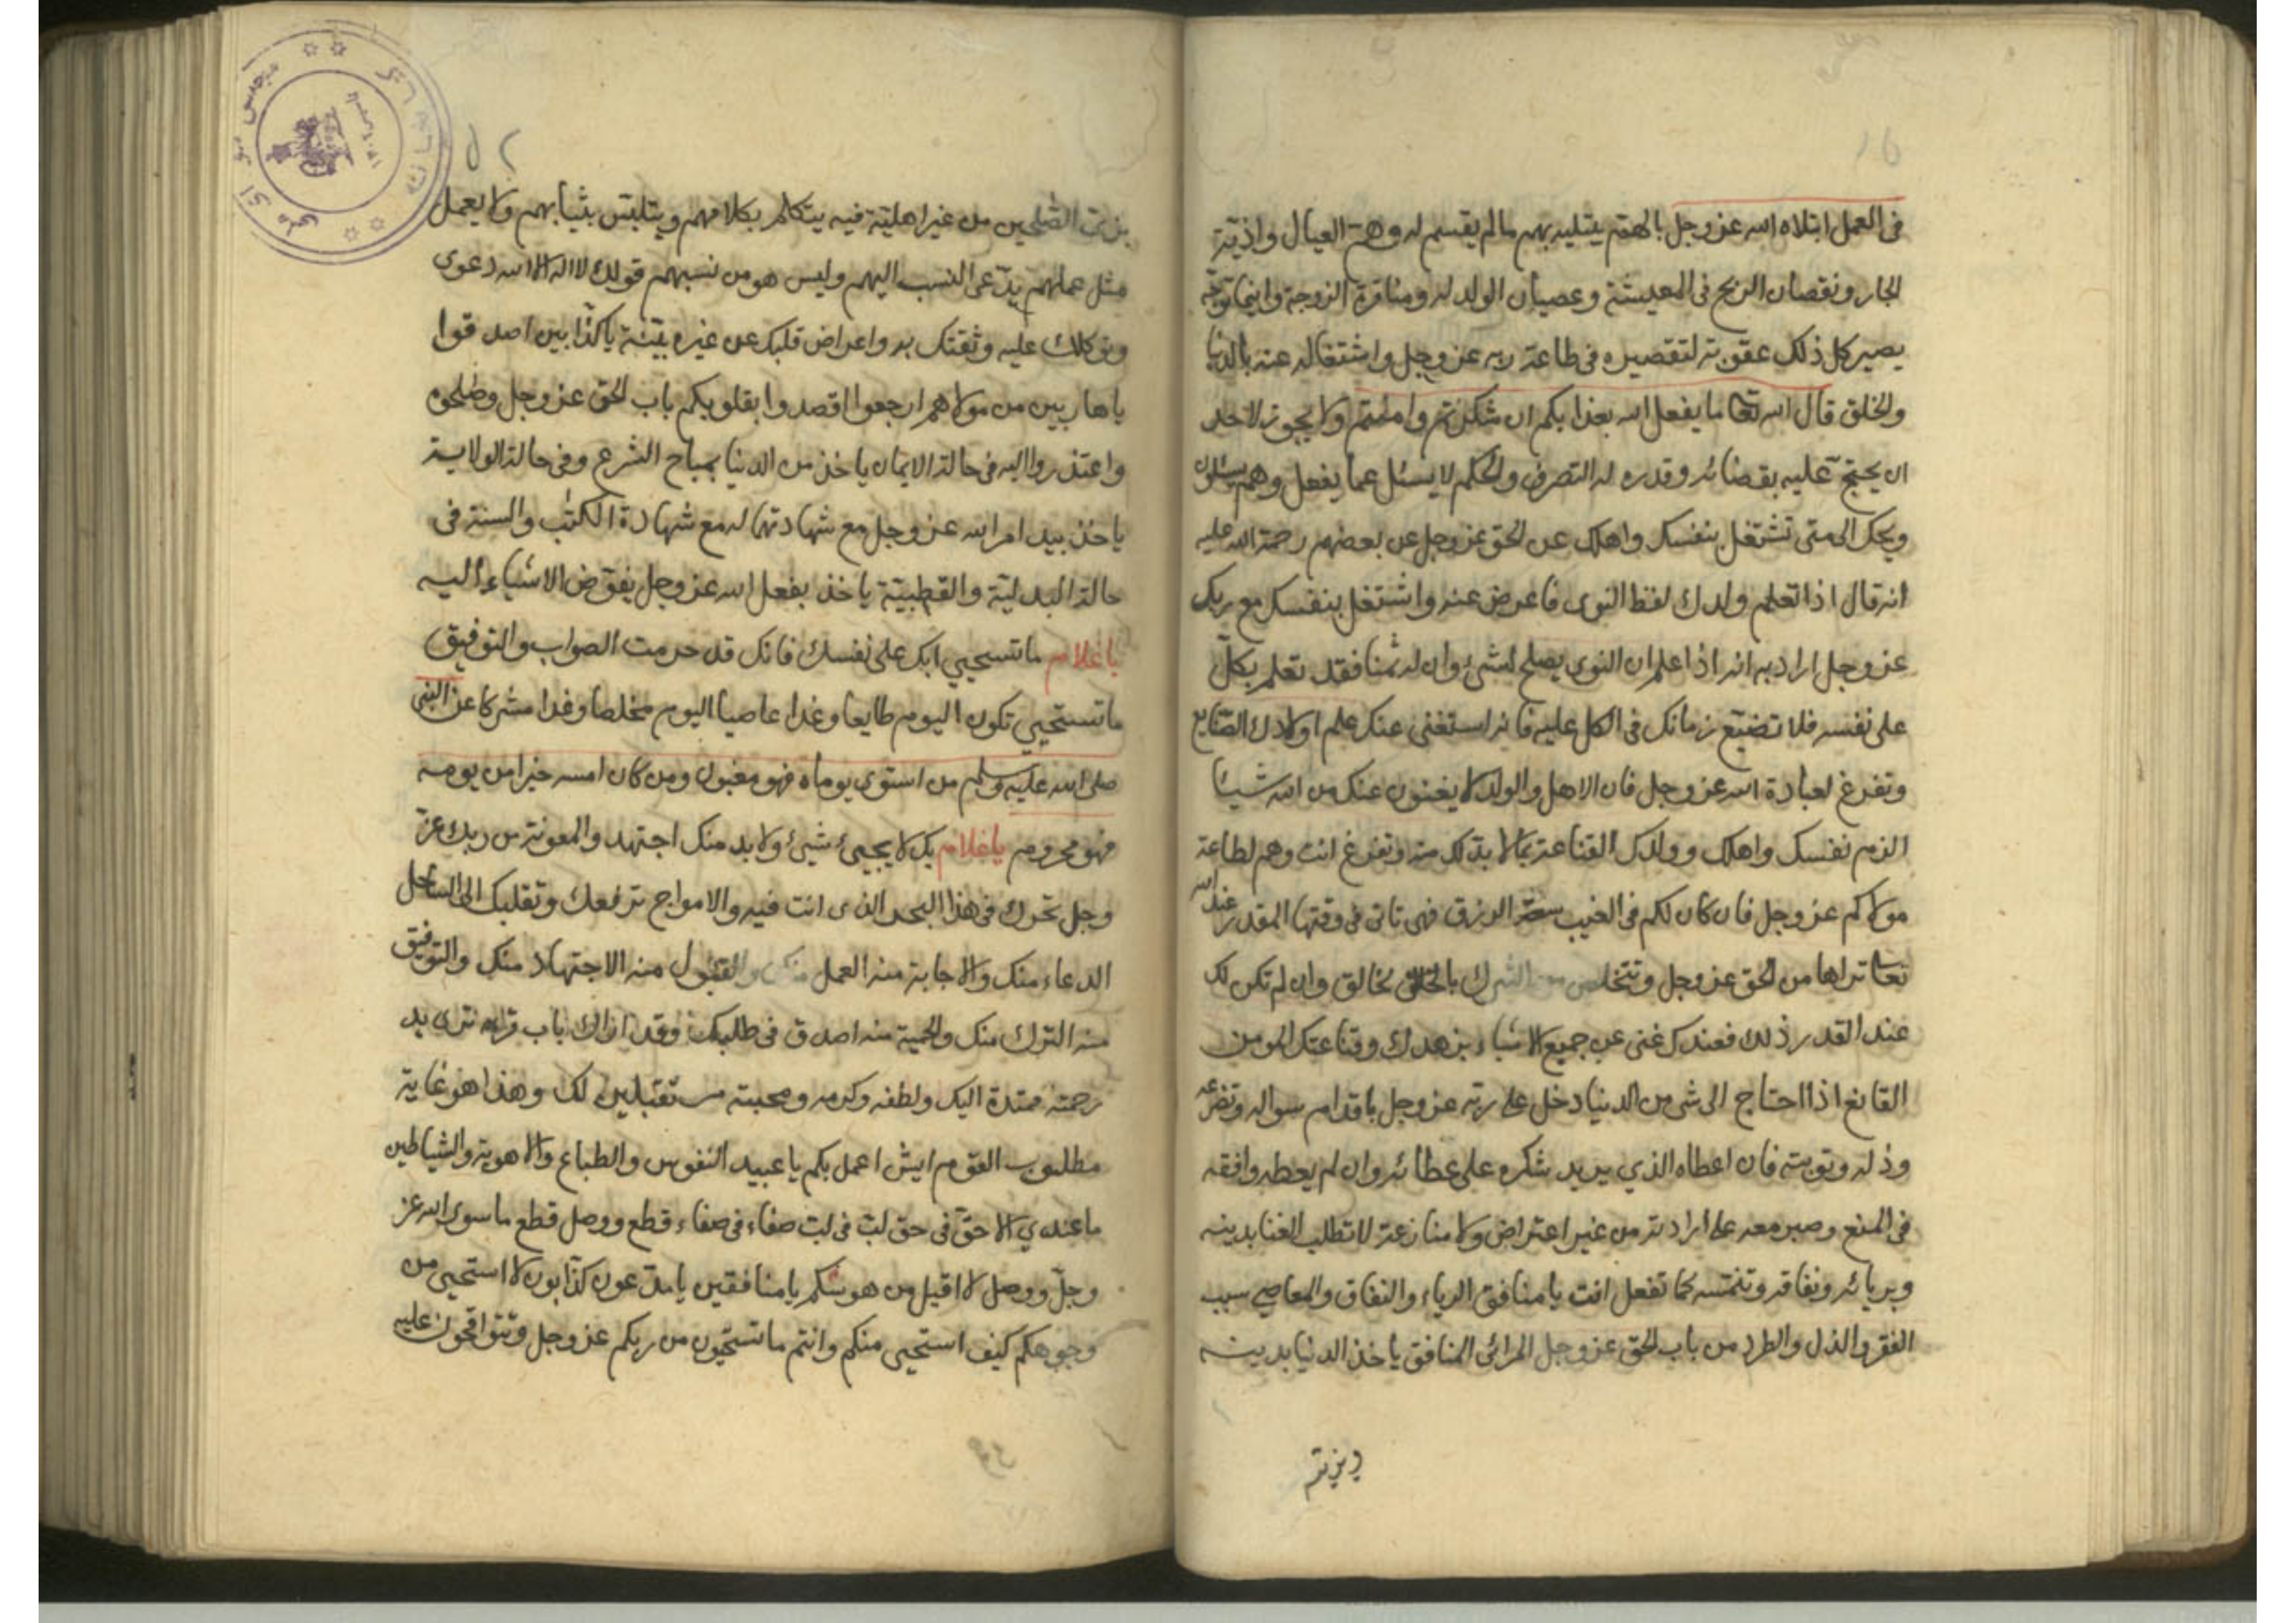 فى العمل ابتلاه الله عز وجل بالهمّ يبتليه بهم مالم يقسم له وهم العيال واذية
الجار ونقصان الربح فى المعيشة وعصيان الولد له ومنافرة الزوجة واينما توجّه
يصير كل ذلك عقوبة لتقصيره فى طاعة ربه عز وجل واشتغاله عنه بالدنيا
والخلق قال الله تعا ما يفعل الله بعذابكم ان شكرتم وامنتم ولا يجوز لاحد
ان يحتجّ عليه بقضائه وقدره له التصرف والحكم لا يسئل عما يفعل وهم يسئلون
ويحك الى متى تشتغل بنفسك واهلك عن الحق عز وجل عن بعضهم رحمة الله عليه
انه قال اذا تعلم ولدك لقط النوى فاعرض عنه واشتغل بنفسك مع ربك
عز وجل اراد به انه اذا علم ان النوى يصلح لشئ وان له ثمنا فقد تعلم بكلّ
على نفسه فلا تضيّع زمانك فى الكل عليه فانه استغنى عنك علم اولادك الصّنايع
وتفرغ لعبادة الله عز وجل فان الاهل والولد لا يغنون عنك من الله شيئا
الزم نفسك واهلك وولدك القناعة بمالا بدّ لك منه وتفرغ انت وهم لطاعة
مولاكم عز وجل فان كان لكم فى الغيب سعة الرزق فهى تاتى فى وقتها المقدر عند الله
تعا تراها من الحق عز وجل وتتخلص من الشرك بالخلق وان لم تكن لك
عند القدر ذلك فعندك غنى عن جميع الاشياء بزهدك وقناعتك المومن
القانع اذا احتاج الى شى من الدنيا دخل على ربّه عز وجل باقدام سواله وتضرعه
وذله وتوبته فان اعطاه الذي يريد شكره على عطائه وان لم يعطه وافقه
فى المنع وصبر معه على ارادته من غير اعتراض ولا منازعة لا تطلب الغنا بدينه
وبريائه ونفاقه وتنمسه كما تفعل انت يا منافق الرياء والنفاق والمعاصي سبب
الفقر والذل والطرد من باب الحق عز وجل المرائى المنافق ياخذ الدنيا بدينه
ويزيّه
بزىّ الصّلحين من غير اهليّة فيه يتكلم بكلامهم ويتلبّس بثيابهم ولا يعمل
مثل عملهم يدّعى النسب اليهم وليس هو من نسبهم قولك لا اله الا الله دعوى
وتوكلك عليه وثقتك به واعراض قلبك عن غيره بيّنة يا كذّابين اصدقوا
يا هاربين من مولاهم ارجعوا اقصدوا بقلوبكم باب الحق عز وجل وصٰلحوه
واعتذروا اليه فى حالة الايمان ياخذ من الدنيا بمباح الشرع وفى حالة الولاية
ياخذ بيد امر الله عز وجل مع شهادتهما له مع شهادة الكتٰب والسنة فى
حالة البدليّة والقطبيّة ياخذ بفعل الله عز وجل يفوّض الاشياء اليه
يا غلام ما تستحيي ابك على نفسك فانك قد حرمت الصواب والتوفيق
ما تستحيي تكون اليوم طايعا وغدا عاصيا اليوم مخلصا وغدا مشركا عن النبى
صلى الله عليه وسلم من استوى يوماه فهو مغبون ومن كان امسه خيرا من يومه
فهو محروم يا غلام بك لا يجيئ شيئ ولا بد منك اجتهد والمعونة من ربك عزّ
وجل تحرك فى هذا البحر الذى انت فيه والامواج ترفعك وتقلبك الى الساحل
الدعاء منك والاجابة منه العمل منك والقبول منه الاجتهاد منك والتوفيق
منه الترك منك والحمية منه اصدق فى طلبك وقد اراك باب قربه ترى يد
رحمته ممتدة اليك ولطفه وكرمه ومحبته مستقبلين لك وهذا هو غاية
مطلوب القوم ايش اعمل بكم يا عبيد النفوس والطباع والاهوية والشياطين
ما عندي الا حقّ فى حق لبّ فى لبّ صفاء فى صفاء قطع ووصل قطع ما سوى الله عز
وجلّ ووصل لا اقبل من هوسكم يا منافقين يا مدّعون كذّابون لا استحيى من
وجوهكم كيف استحيى منكم وانتم ما تستحيون من ربكم عز وجل وتتواقحون عليه